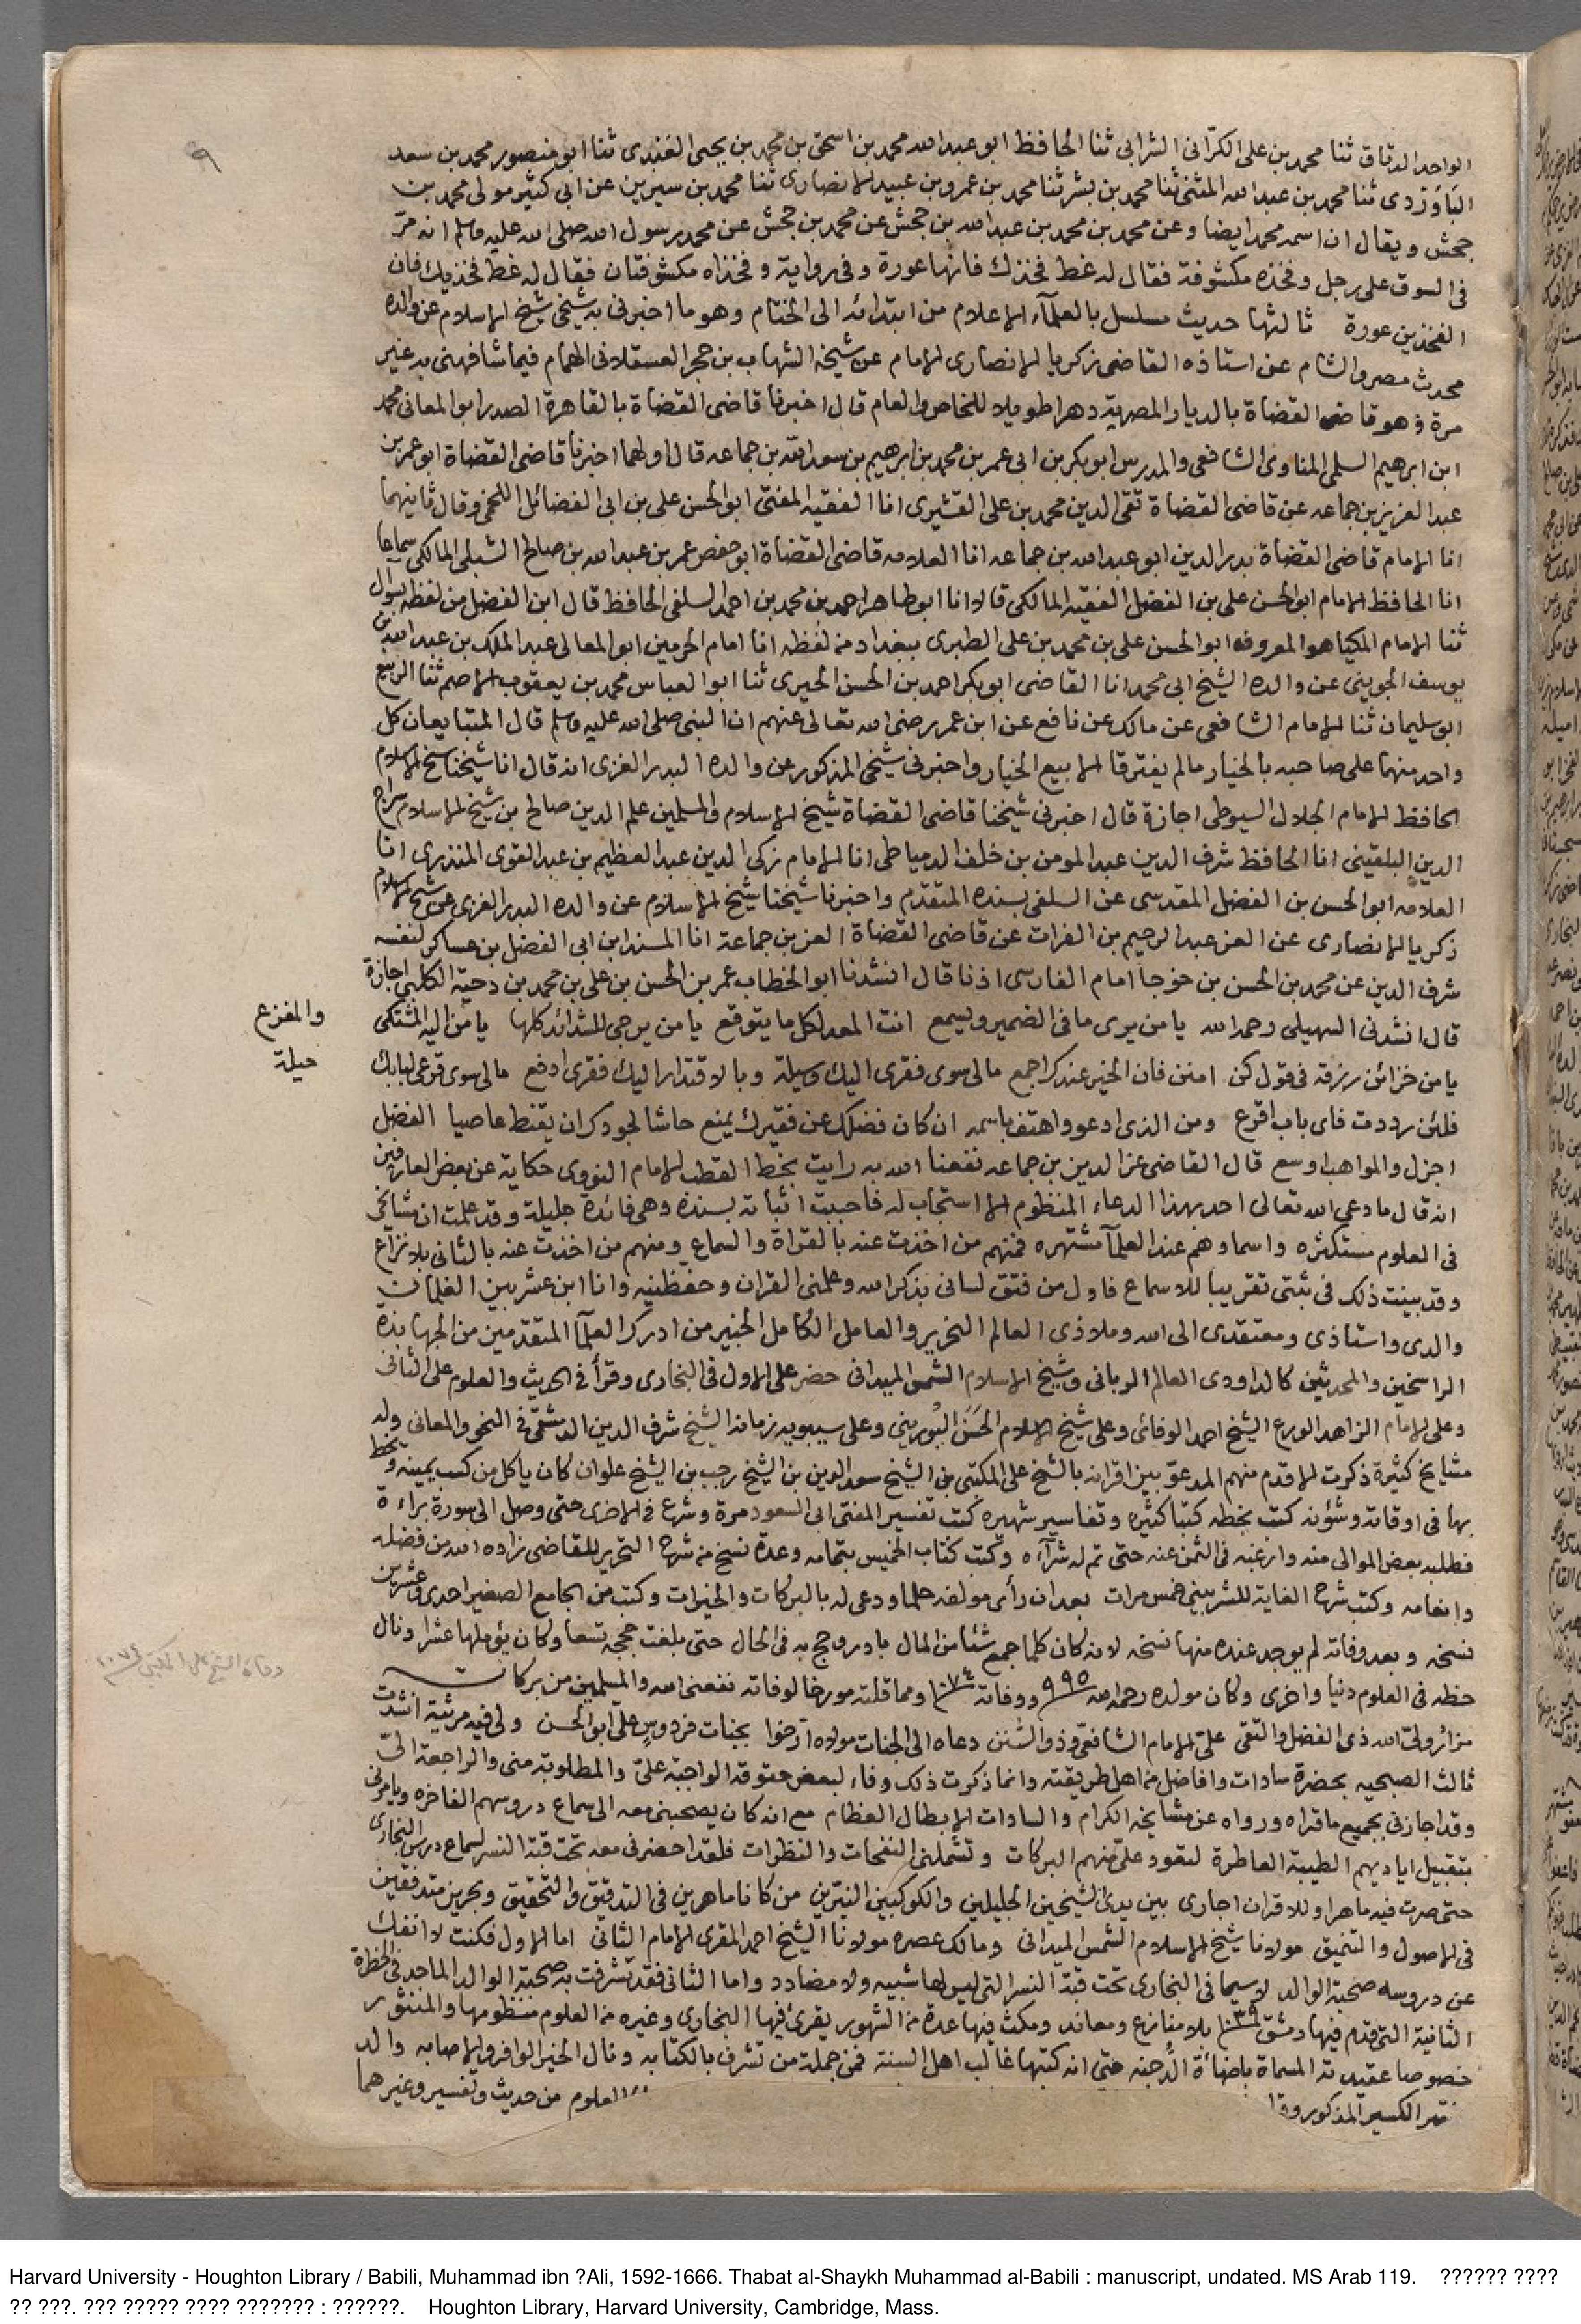 ٩
الواحد الدقاق ثنا محمد بن على الكرّانى الشرابى ثنا الحافظ ابو عبد الله محمد بن اسحق بن محمد بن يحيى العَبْدى ثنا ابو منصور محمد بن سعد
البَاوَرْدى ثنا محمد بن عبد الله المثنى ثنا محمد بن بشر ثنا محمد بن عمرو بن عبيد الانصارى ثنا محمد بن سيرين عن ابى كثير مولى محمد بن
جحش ويقال ان اسمه محمد ايضا وعن محمد بن محمد بن عبد الله بن جحش عن محمد بن جحش عن محمد رسول الله صلى الله عليه وسلم انه مرّ
فى السوق على رجل وفخذه مكشوفة فقال له غط فخذك فانها عورة وفى رواية وفخذاه مكشوفتان فقال له غط فخذيك فان
الفخذين عورة ثالثها حديث مسلسل بالعلمآء الاعلام من ابتدائه الى الختام وهو ما اخبرنى به شيخى شيخ الاسلام عن والده
محدث مصر والشام عن استاذه القاضى زكريا الانصارى الامام عن شيخه الشهاب بن حجر العسقلانى الهمام فيما شافهنى به غير
مرة وهو قاضى القضاة بالديار المصرية دهرا طويلا للخاص والعام قال اخبرنا قاضى القضاة بالقاهرة الصدر ابو المعانى محمد
ابن ابرهيم السلمى المناوى الشافعى والمدرس ابو بكر بن ابى عمر بن محمد بن ابرهيم بن سعد الله بن جماعه قال اولهما اخبرنا قاضى القضاة ابو عمر بن
عبد العزيز بن جماعه عن قاضى القضاة تقى الدين محمد بن على القشيرى انا الفقيه المفتى ابو الحسن على بن ابى الفضائل اللخمى وقال ثانيهما
انا الامام قاضى القضاة بدر الدين ابو عبد الله بن جماعه انا العلامه قاضى القضاة ابو حفص عمر بن عبد الله بن صالح الشبلى المالكى سماعا
انا الحافظ الامام ابو الحسن على بن الفضل الفقيه المالكى قالا انا ابو طاهر احمد بن محمد بن احمد السلفى الحافظ قال ابن الفضل من لفظه
ثنا الامام الكيا هو المعروف ابو الحسن على بن محمد بن على الطبرى ببغداد من لفظه انا امام الحرمين ابو المعالى عبد الملك بن عبد الله بن
يوسف الجوينى عن والده الشيخ ابى محمد انا القاضى ابو بكر احمد بن الحسن الحيرى ثنا ابو العباس محمد بن يعقوب الاصم ثنا الربيع
ابو سليمان ثنا الامام الشافعى عن مالك عن نافع عن ابن عمر رضى الله تعالى عنهم ان النبى صلى الله عليه وسلم قال المتبايعان كل
واحد منهما على صاحبه بالخيار مالم يفترقا الا بيع الخيار واخبرنى شيخى المذكور عن والده البدر الغزى انه قال انا شيخنا شيخ الاسلام
الحافظ الامام الجلال السيوطى اجازة قال اخبرنى شيخنا قاضى القضاة شيخ الاسلام والمسلمين علم الدين صالح بن شيخ الاسلام سراج
الدين البلقينى انا الحافظ شرف الدين عبد المومن بن خلف الدمياطى انا الامام زكى الدين عبد العظيم بن عبد القوى المنذرى انا
العلامه ابو الحسن بن الفضل المقدسى عن السلفى بسنده المتقدم واخبرنا شيخنا شيخ الاسلام عن والده البدر الغزى عن شيخ الاسلام
زكريا الانصارى عن العز عبد الرحيم بن الفرات عن قاضى القضاة العز بن جماعة انا المسند ابن ابى الفضل بن عساكر لنفسه
شرف الدين عن محمد بن الحسن بن خوجا امام الفارسى اذنا قال انشدنا ابو الخطاب عمر بن الحسن بن على بن محمد بن دحية الكلبى اجازة
قال انشدنى السهيلى رحمه الله يا من يرى ما فى الضمير ويسمع انت المعد لكل ما يتوقع يا من يرجى للشدائد كلها يا من اليه المشتكى
والمفزع
يا من خزائن رزقه فى قول كن امنن فان الخير عندك اجمع مالى سوى فقرى اليك وسيلة وبالافتقار اليك فقرى ادفع مالى سوى قرعى لبابك
حيلة
فلئن رددت فاى باب اقرع ومن الذى ادعو واهتف باسمه ان كان فضلك عن فقيرك يمنع حاشا لجودك ان يقنط عاصيا الفضل
اجزل والمواهب اوسع قال القاضى عز الدين بن جماعه نفعنا الله به رايت بخط القطب الامام النووى حكاية عن بعض العارفين
انه قال ما دعى الله تعالى احد بهذا الدعاء المنظوم الا استجاب له فاحببت اثباته بسنده وهى فائدة جليلة وقد علمت ان مشايخى
فى العلوم مستكثره واسماوهم عند العلمآ مشتهره فمنهم من اخذت عنه بالقراة والسماع ومنهم من اخذت عنه بالثانى بلا نزاع
وقد بينت ذلك فى ثبتى تقريبا للاسماع فاول من فتق لسانى بذكر الله وعلمنى القران وحفظنيه وانا ابن عشر بين الغلمان
والدى واستاذى ومعتقدى الى الله وملاذى العالم النحرير والعامل الكامل الخبير من ادرك العلمآ المتقدمين من الجهابذه
الراسخين والمحدثين كالداودى العالم الربانى وشيخ الاسلام الشمس الميدانى حضر على الاول فى البخارى وقرأ فى الحديث والعلوم على الثانى
وعلى الامام الزاهد الورع الشيخ احمد الوفائى وعلى شيخ الاسلام الحَسَن البُورينى وعلى سيبويه زمانه الشيخ شرف الدين الدمشقى فى النحو والمعانى وله
مشايخ كثيرة ذكرت الاقدم منهم المدعوّ بين اقرانه بالشيخ على المكتبى بن الشيخ سعد الدين بن الشيخ رجب بن الشيخ علوان كان ياكل من كسب يمينه ويخط
بها فى اوقاته وشؤنه كتب بخطه كتبا كثيره وتفاسير شهيره كتب تفسير المفتى ابى السعود مرة وشرع فى الاخرى حتى وصل الى سورة براءة
فطلبه بعض الموالى منه وارغبه فى الثمن عنه حتى تم له شرآءه وكتب كتاب الخميس بتمامه وعدة نسخ من شرح التحرير للقاضى زاده الله من فضله
وانعامه وكتب شرح الغاية للشربينى خمس مرات بعد ان رأى مولفه حلما ودعى له بالبركات والخيرات وكتب من الجامع الصغير احدى وعشرين
نسخه وبعد وفاته لم يوجد عنده منها نسخه لانه كان كلما جمع شئا من المال بادر وحج به فى الحال حتى بلغت حججه تسعا وكان يؤملها عشرا ونال
وفاة الشيخ على المكتبى ١٠٧٤
حظه فى العلوم دنيا واخرى وكان مولده رحمه الله ٩٩٥ ووفاته ١٠٧٤ ومما قلته مورخا لوفاته نفعنى الله والمسلمين من بركات
مزائر ولىّ الله ذى الفضل والتقى علىّ الامام الشافعىّ وذو السُّنن دعاه الى الجنات مولاه ارخوا بجنات فردوس علىّ ابو الحسن ولى فيه مرثية انشدت
ثالث الصبحيه بحضرة سادات وافاضل من اهل طريقته وانما ذكرت ذلك وفاء لبعض حقوقه الواجبة علىّ والمطلوبة منى والراجعة الىّ
وقد اجازنى بجميع ما قراه ورواه عن مشايخه الكرام والسادات الابطال العظام مع انه كان يصحبنى معه الى سماع دروسهم الفاخره ويامرنى
بتقبيل اياديهم الطيبة العاطرة لتعود علىّ منهم البركات وتشملنى النفحات والنظرات فلقد احضرنى معه تحت قبة النسر لسماع درس البخارى
حتى صرت فيه ماهرا وللاقران اجارى بين يدى الشيخين الجليلين والكوكبين النيّرين من كانا ماهرين فى التدقيق والتحقيق وبحرين متدفقين
فى الاصول والتنميق مولانا شيخ الاسلام الشمس الميدانى ومالك عصره مولانا الشيخ احمد المقرى الامام الثانى اما الاول فكنت لا انفك
عن دروسه صحبة الوالد لا سيما فى البخارى تحت قبة النسر التى ليس لها شبيه ولا مضادد واما الثانى فقد تشرفت به صحبة الوالد الماجد فى الخطرة
الثانية التى قدم فيها دمشق ١٠٣٩ بلا منازع ومعاند ومكث فيها عدة من الشهور يقرئ فيها البخارى وغيره من العلوم منظومها والمنثور
خصوصا عقيدته المسماة باضائة الدُّجنه حتى انه كتبها غالب اهل السنة فمن جملة من تشرف بالكتابه ونال الخير الوافر والاصابه والد
الكسير المذكور العلوم من حديث وتفسير وغيرهما
Harvard University - Houghton Library / Babili, Muhammad ibn ?Ali, 1592-1666. Thabat al-Shaykh Muhammad al-Babili : manuscript, undated. MS Arab 119. ?????? ????
?? ???. ??? ????? ???? ??????? : ??????. Houghton Library, Harvard University, Cambridge, Mass.